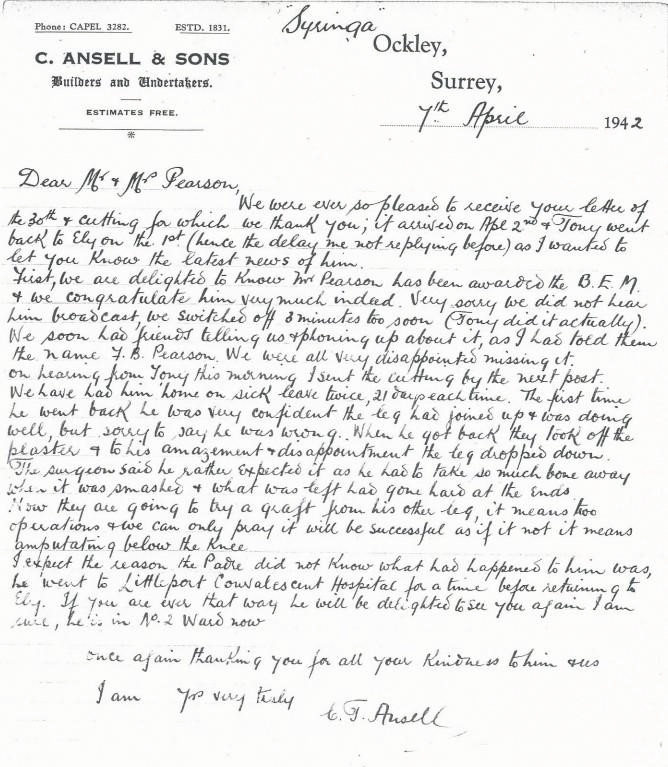 Phone: CAPEL 3282. ESTD. 1831.
C. ANSELL & SONS
Builders and Undertakers.
ESTIMATES FREE.
*
"Syringa"
Ockley,
Surrey,
7th April 1942
Dear Mr & Mrs Pearson,
We were ever so pleased to receive your letter of
the 30th & cutting for which we thank you; it arrived on Apl 2nd & Tony went
back to Ely on the 1st (hence the delay me not replying before) as I wanted to
let you know the latest news of him.
First, we are delighted to know Mr Pearson has been awarded the B.E.M.
& we congratulate him very much indeed. Very sorry we did not hear
him broadcast, we switched off 3 minutes too soon (Tony did it actually).
We soon had friends telling us & phoning up about it, as I had told them
the name F. B. Pearson. We were all very disappointed missing it.
on hearing from Tony this morning I sent the cutting by the next post.
We have had him home on sick leave twice, 21 days each time. The first time
he went back he was very confident the leg had joined up & was doing
well, but sorry to say he was wrong. When he got back they took off the
plaster & to his amazement & disappointment the leg dropped down.
The surgeon said he rather expected it as he had to take so much bone away
when it was smashed & what was left had gone hard at the ends.
Now they are going to try a graft from his other leg, it means two
operations & we can only pray it will be successful as if it not it means
amputating below the knee
I expect the reason the Padre did not know what had happened to him was,
he went to Littleport Convalescent Hospital for a time before returning to
Ely. If you are ever that way he will be delighted to see you again I am
sure, he is in No. 2 Ward now
once again thanking you for all your kindness to him & us
I am yrs very truly
C. F. Ansell